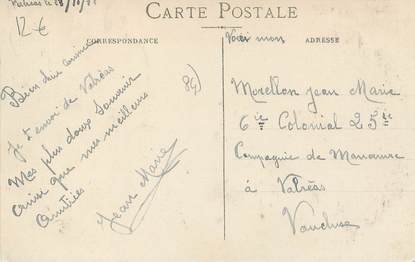 Valréas le
12 €
CARTE POSTALE
CORRESPONDANCE
ADRESSE
Bien
Je t envoi de Valréas
Mes plus doux Souvenir
ainsi que mes meilleurs
Amitiées
Jean Marie
Morellon Jean Marie
6ie Colonial 25ie
Compagnie de Manœuvre
à Valréas
Vaucluse